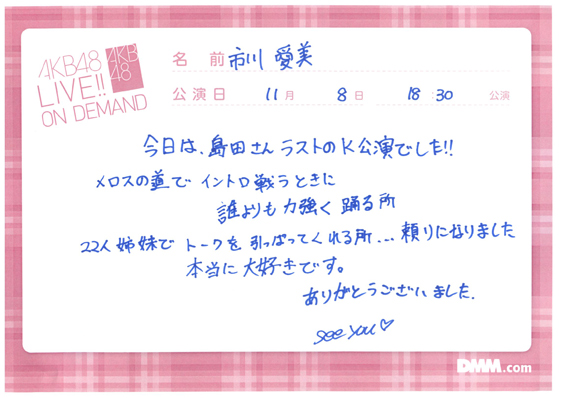 AKB48
LIVE!!
ON DEMAND
AKB
48
名 前 市川 愛美
公演日 11月 8日 18:30 公演
今日は、島田さん ラストのK公演でした!!
メロスの道で イントロ戦うときに
誰よりも力強く踊る所
22人姉妹で トークを 引っぱってくれる所... 頼りになりました
本当に大好きです。
ありがとうございました.
see you♡
DMM.com